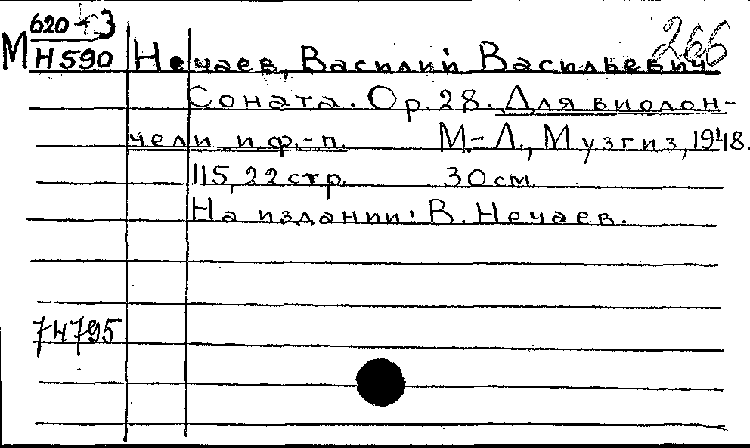 М 620-3
Н590
266
Нечаев, Василий Васильевич
Соната. Ор. 28. Для виолон-
чели и ф.-п. М.-Л., Музгиз, 1948.
115, 22 стр. 30 см.
На издании: В. Нечаев.
74795